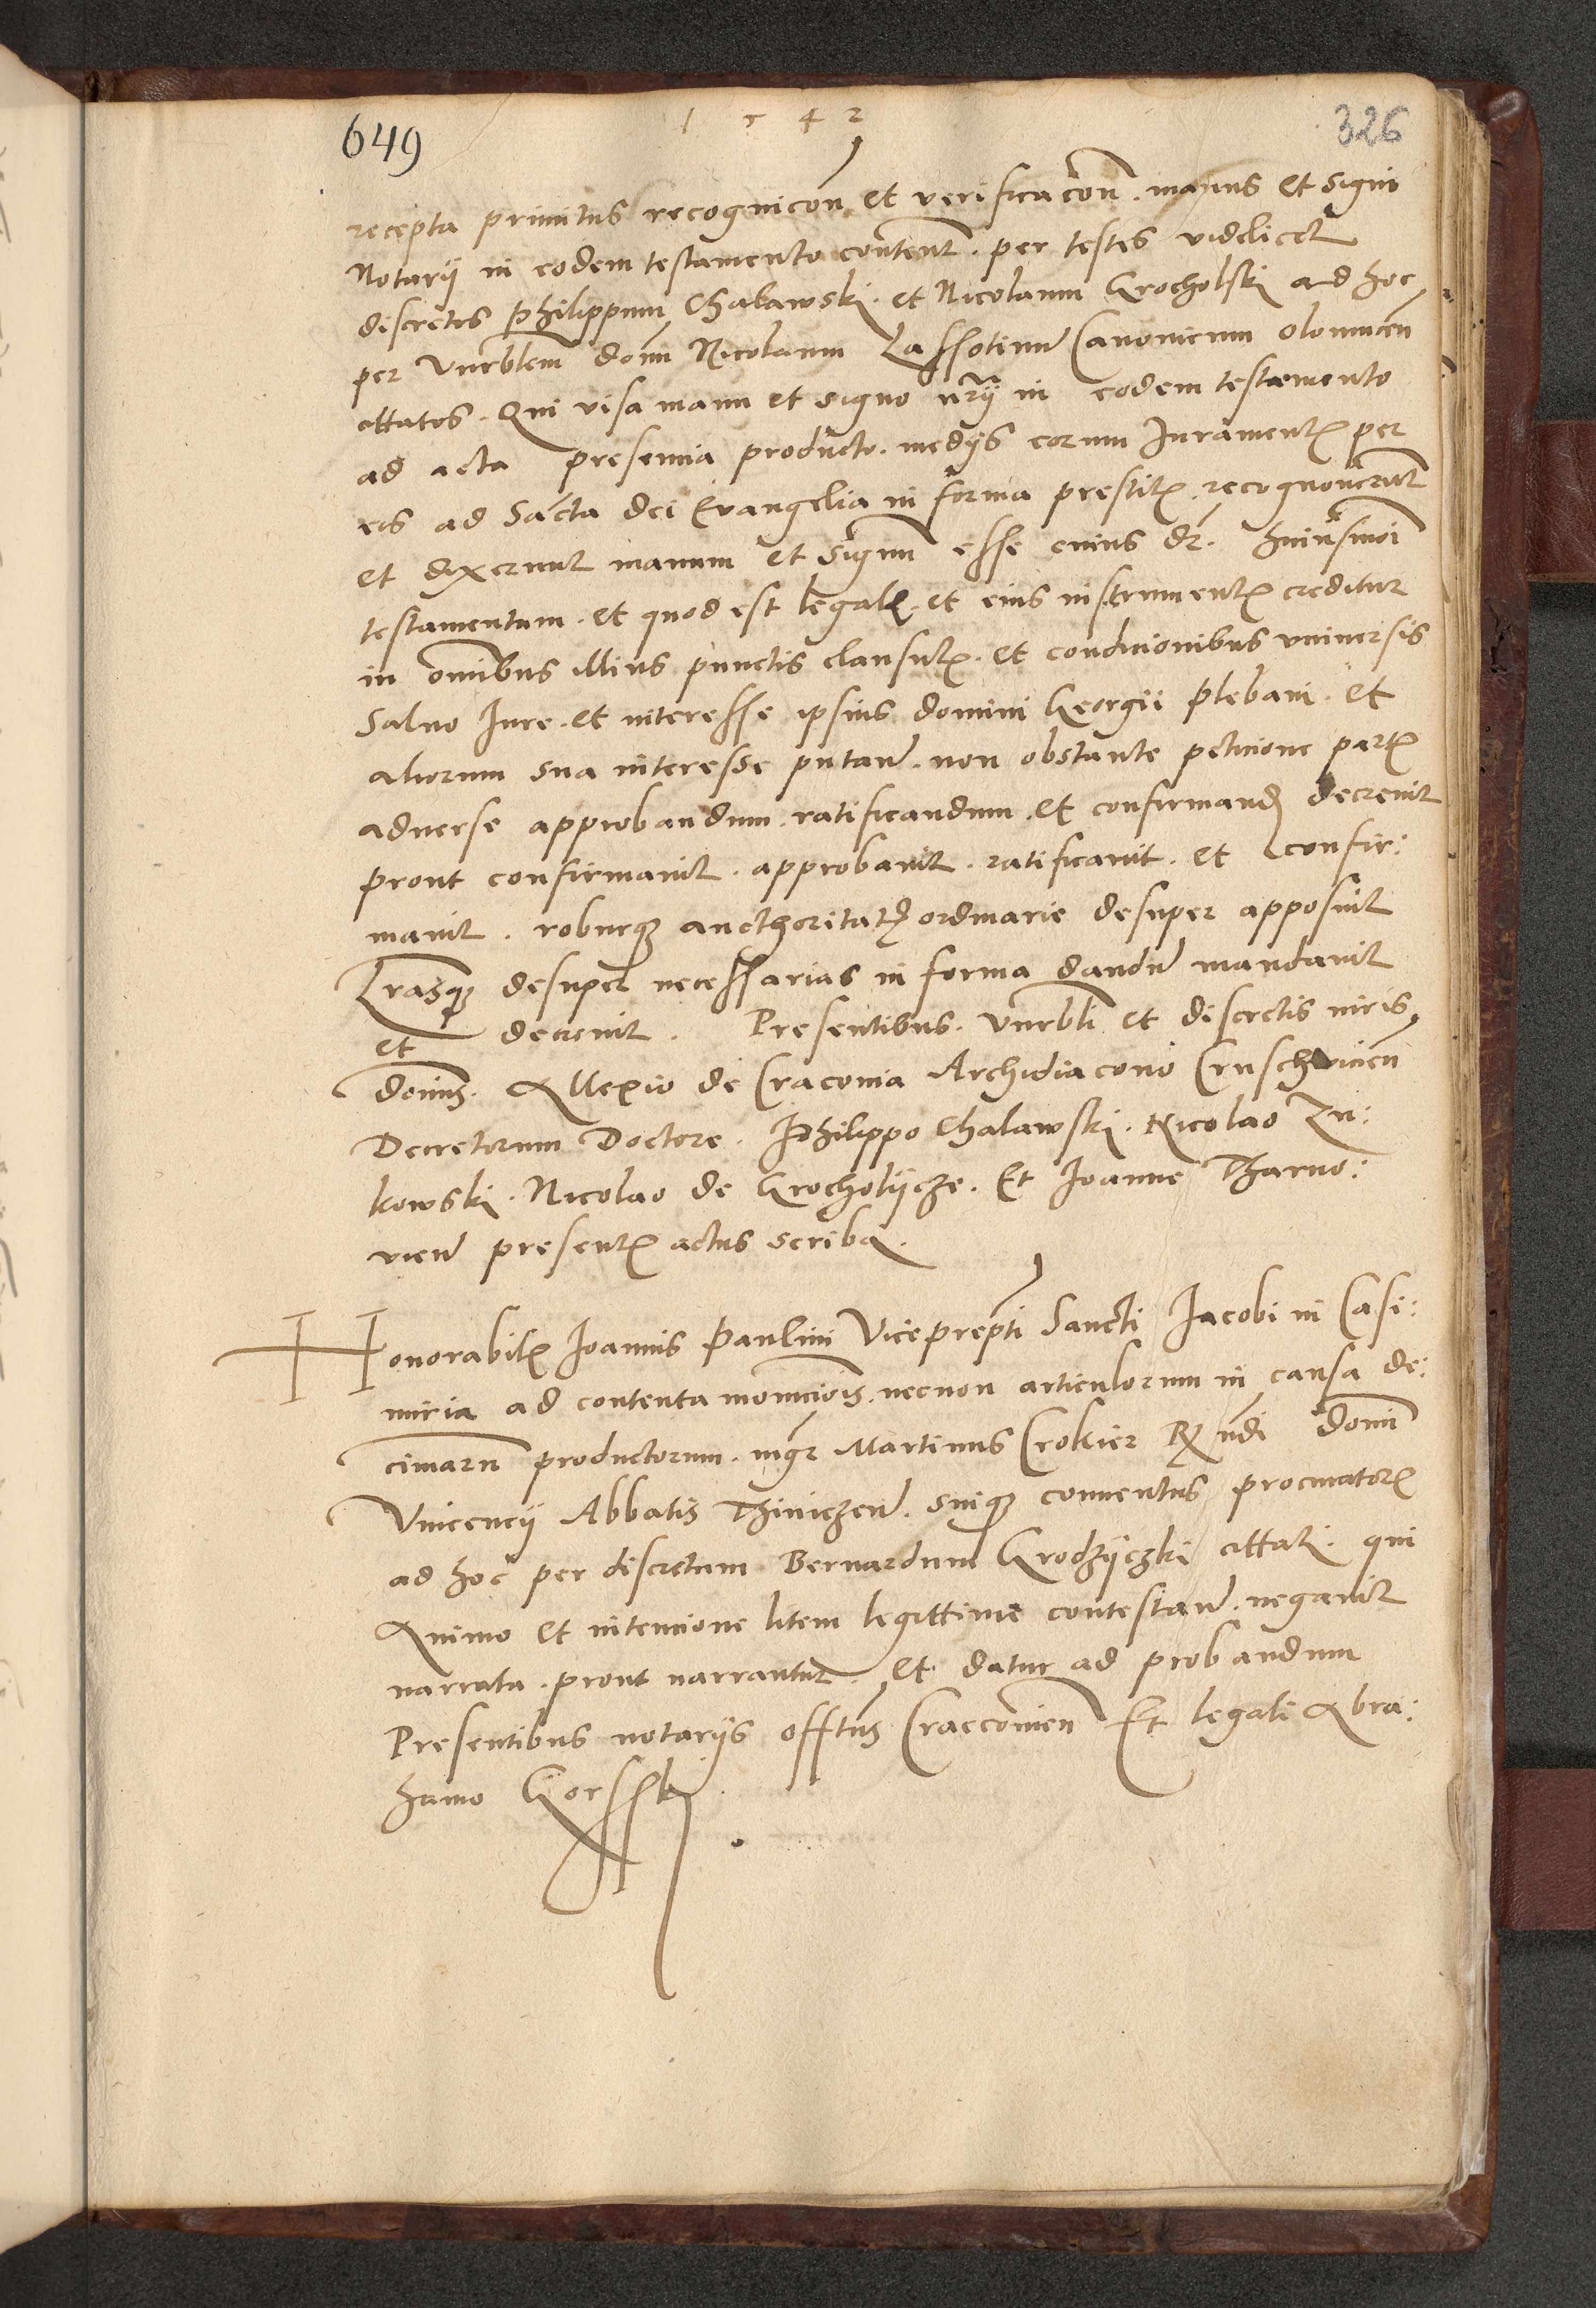 649
1542
326
recepta primitus recognicōn et verificacōn. manus et signi
Notarij in eodem testamento contentꝭ. per testes videlicet
discretos Philippum Chalawski. et Nicolaum Grocholski ad hoc
per Vnrblem̄ dom̄ Nicolaum Lassotinū Canonicum olomucen̄
cittatos. Qui visa manu et signo nr̄ij in eodem testamento
ad acta presencia producto. medijs eorum Juramentꝭ per
eos ad Sācta dei Evangelia in forma prestitꝭ recognoverūt
et dixerunt manum et signum esse cuius dr̄. huiusmōi
testamentum. et quod est legalꝭ. et eius instrumentꝭ creditur
in om̄ibus illius punctis clausulꝭ. et condicionibus vniuersis
Saluo Jure. et interesse ipsius domini Georgii plebani. et
aliorum sua interesse putan̄. non obstante peticione partꝭ
aduerse approbandum. ratificandum. et confirmandꝭ decreuit
prout confirmauit. approbauit. ratificauit. et confir:
mauit. roburqꝫ authoritatꝭ ordinarie desuper apposuit
Lr̄asqꝫ desuper necessarias in forma dandū mandauit
et decreuit. Presentibus. Vnrbli et discretis viris
dominis. Allexio de Craconia Archidiacono Cruschwicien̄
Decretorum Doctore. Philippo Chalawski. Nicolao Zu:
kowski. Nicolao de Grocholijcze. Et Joanne Tharno:
vien̄ presentꝭ actus scriba.
Honorabilꝭ Joannis Paulini Viceprepti Sancti Jacobi in Casi:
miria ad contenta monicionis. necnon articulorum in causa de:
cimarū productorum. mgr̄ Martinus Crokier Rꝫndi domi
Vincencij Abbatis Thiniczen̄. suiqꝫ conuentus procuratorꝭ
ad hoc per discretum Bernardum Grodzijczki cittatꝭ. qui
Animo et intencione litem legittime contestan̄. negauit
narrata. prout narrantur. et datur ad probandum
Presentibus notarijs offtus Craccouien̄ Et legali Abra:
hamo Gorsski